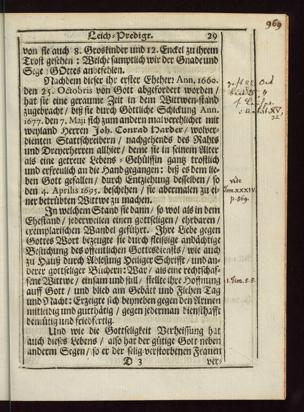 969
Leich-Predigt. 29
von sie auch 8. Groskinder und 12. Enckel zu ihrem
Trost gesehen : Welche sämptlich wir der Gnade und
Sege GOttes anbefehlen.
Nachdem dieser ihr erster Eheherr Ann. 1660.
den 25. Octobris von Gott abgefordert worden /
hat sie eine geraume Zeit in dem Wittwen-stand
zugebracht / biß sie durch Göttliche Schickung Ann.
1677. den 7. Maji sich zum andern mal verehlichet mit
weyland Herren Joh. Conrad Harder, wolver-
dienten Stattschreibern / nachgehends des Rahts
und Dreyerherren allhier / deme sie in seinem Alter
als eine getreue Lebens-Gehülffin gantz tröstlich
und erfreulich an die Hand gegangen: biß es dem lie-
ben Gott gefallen / durch Entziehung desselben / so
den 4. Aprilis 1695. beschehen / sie abermalen zu ei-
ner betrübten Wittwe zu machen.
In welchem Stand sie dann / so wol als in dem
Ehestand / jederweilen einen gottseligen / ehrbaren /
exemplarischen Wandel geführt. Ihre Liebe gegen
Gottes Wort bezeugte sie durch fleissige andächtige
Besuchung des offentlichen Gottesdiensts / wie auch
zu Hauß durch Ablesung Heiliger Schrifft / und an-
derer gottseliger Bücheren: War / als eine rechtschaf-
fene Wittwe / einsam und still / stellte ihre Hoffnung
auff Gott / und blieb am Gebätt und Flehen Tag
und Nacht: Erzeigte sich beyneben gegen den Armen
mitleidig und gutthätig / gegen jederman dienfthafft
demütig und friedfertig.
Und wie die Gottseligkeit Verheissung hat
auch dieses Lebens / also hat der gütige Gott neben
anderem Segen / so er der selig verstorbenen Frauen
D 3 ver-
vide
Tom. XXXIV.
p. 869.
1. Tim. 5. 5.